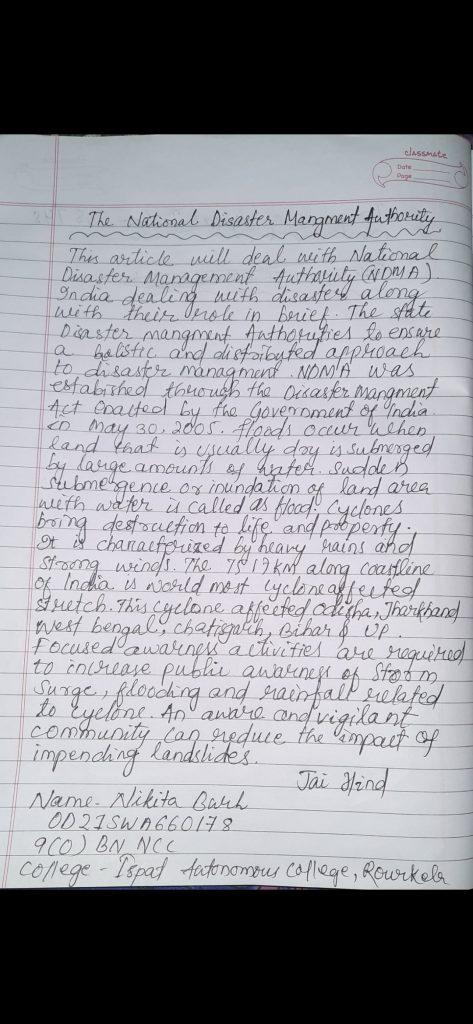 classmate
Date
Page
The National Disaster Mangment Authority
This article will deal with National
Disaster Management Authority (NDMA).
India dealing with disasters along
with their role in brief. The state
Disaster mangment Authoruties to ensure
a holistic and distributed approach
to disaster managment. NDMA was
estabished through the Disaster Mangment
Act Enacted by the Government of India
in May 30, 2005. floods occur when
land that is usually dry is submerged
by large amounts of water. Sudden
submergence or inundation of land area
with water is called as flood. Cyclones
bring destruction to life and property.
It is characterized by heavy rains and
strong winds. The 7517km along coastline
of India is world most cyclone affected
stretch. This cyclone affected odisha, Jharkhand
West bengal, chatisgarh, Bihar & UP.
focused awarness activities are required
to increase public awarness of Storm
Surge, flooding and rainfall related
to cyclone. An aware and vigilant
community can reduce the impact of
impending landslides.
Jai Hind
Name- Nikita Barh
OD21SWA660178
9(O) BN NCC
College - Ispat Autonomous College, Rourkela